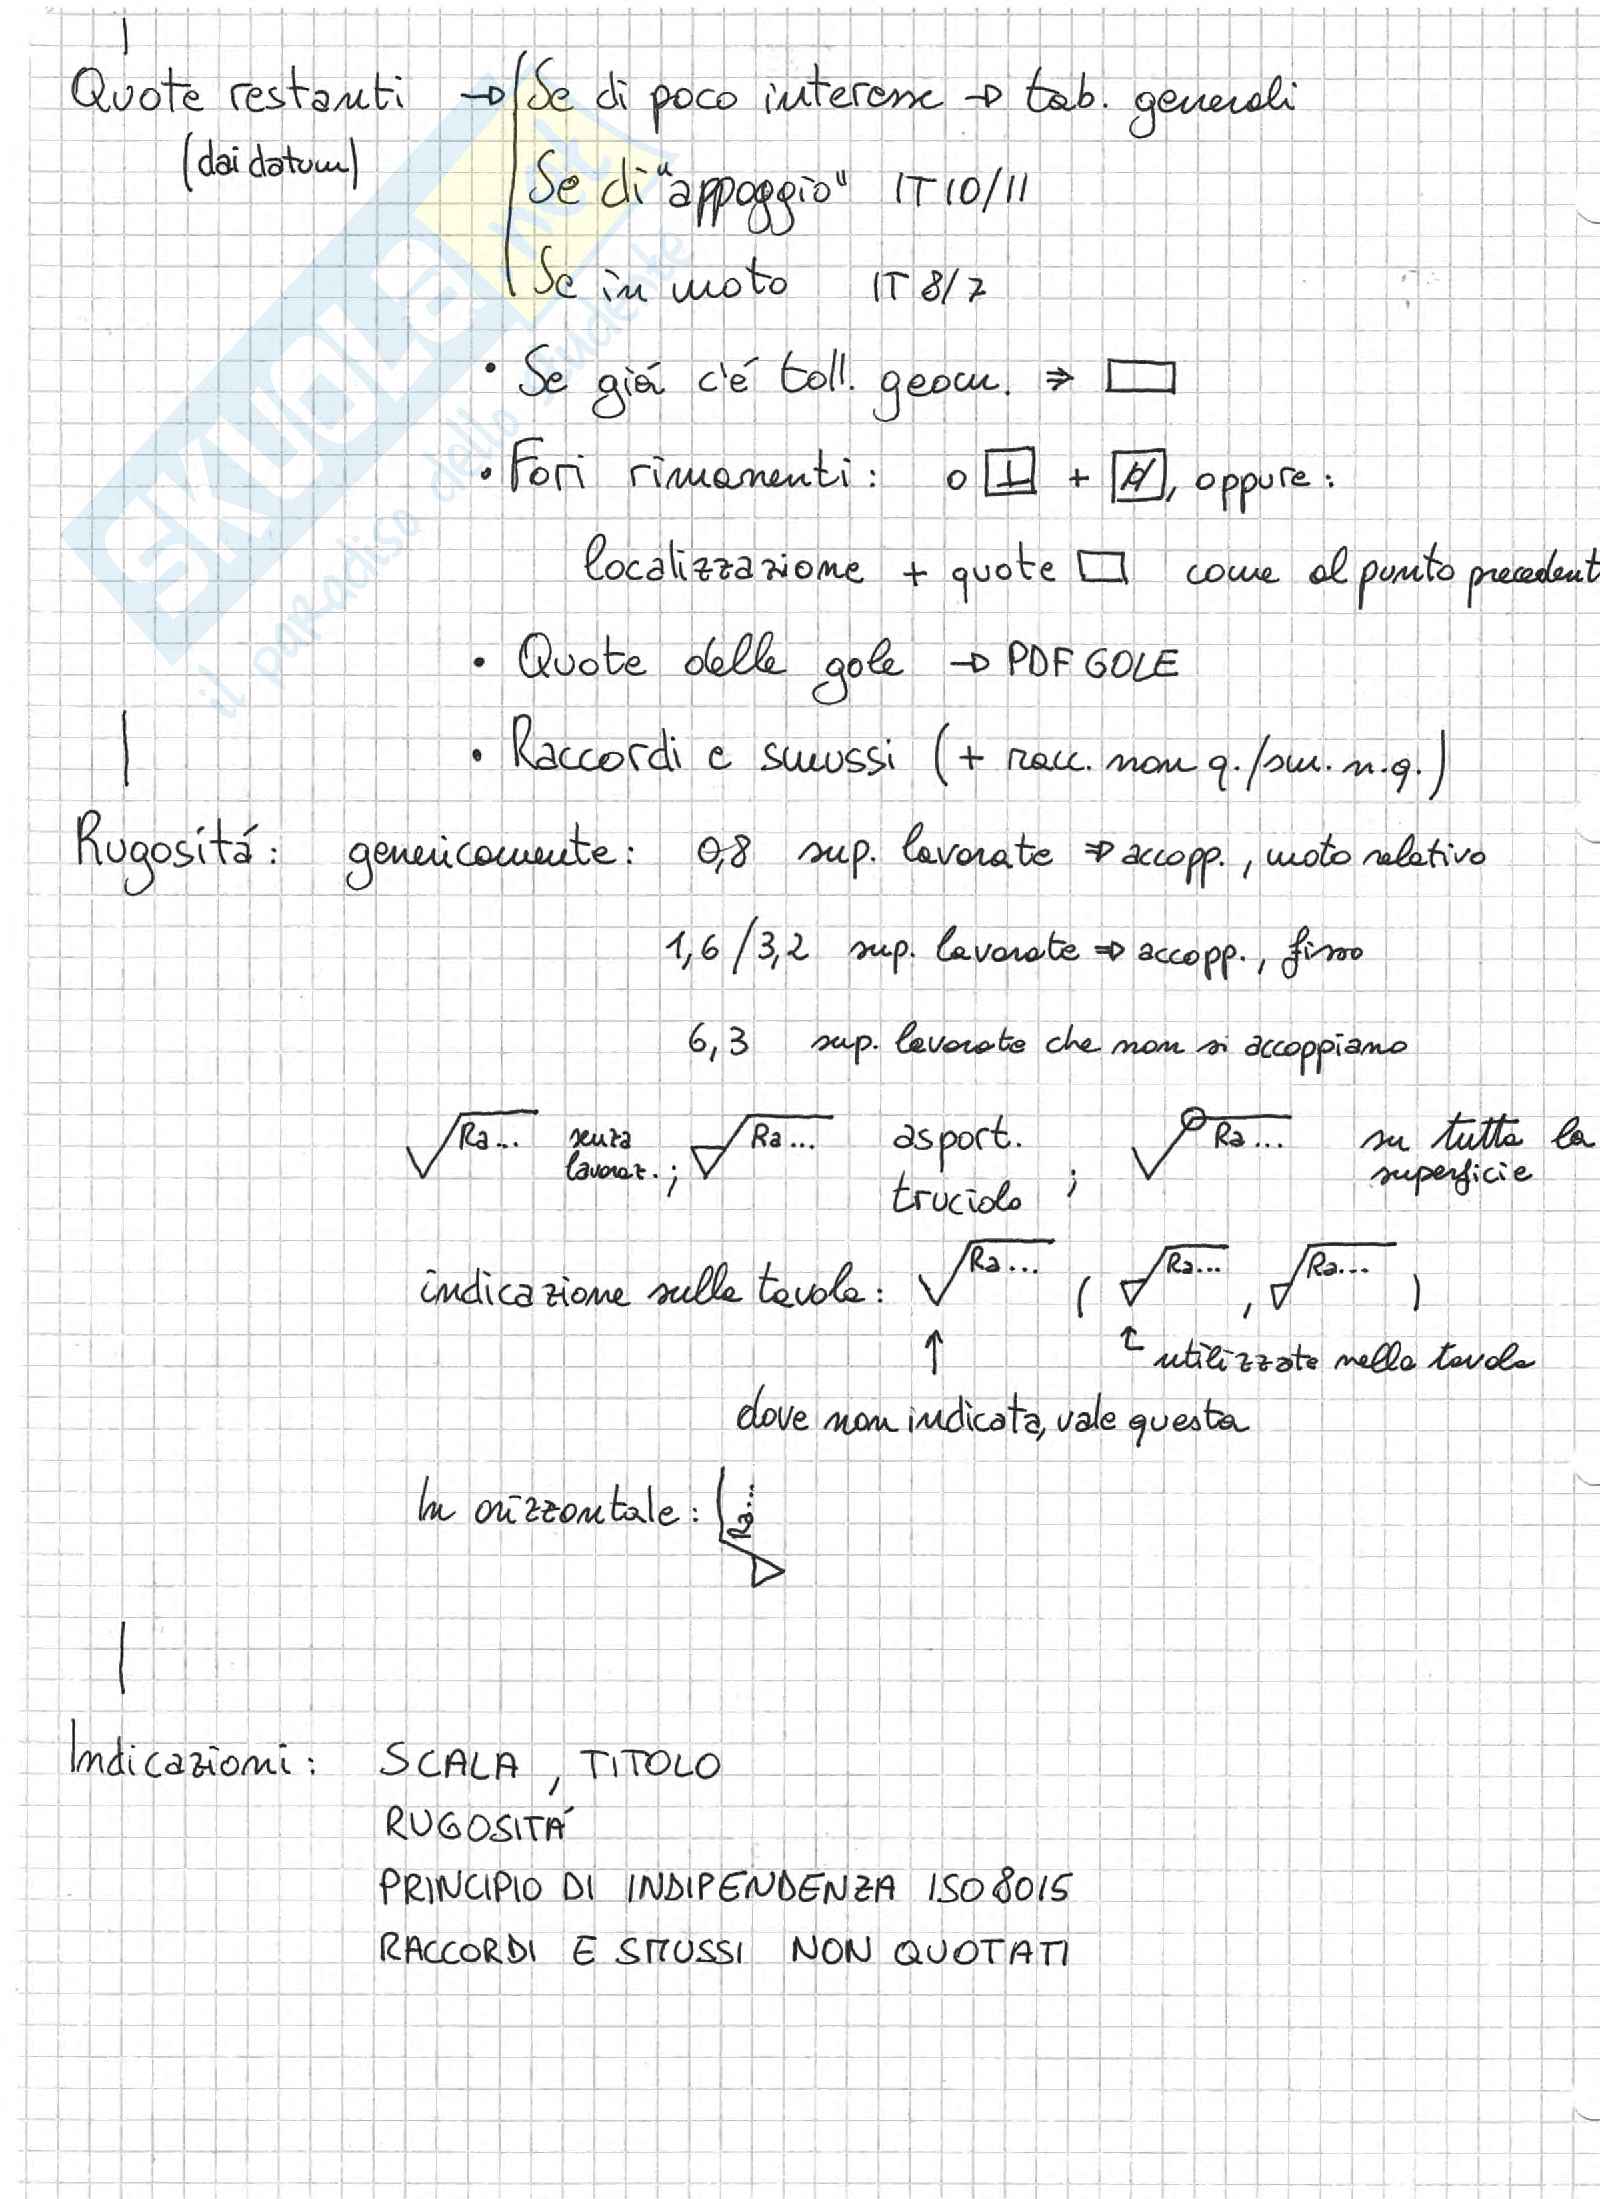 Quote restanti → Se di poco interesse → tab. generali
(dai datum)
Se di "appoggio" IT 10/11
Se in moto IT 8/7
• Se giá c'é toll. geom. ⇒ ▭
• Fori rimanenti: o ⊥ + ⌭, oppure:
localizzazione + quote ▭ come al punto precedent
• Quote delle gole → PDF GOLE
• Raccordi e smussi (+ racc. non q./sm. n.q.)
Rugositá: genericamente: 0,8 sup. lavorate ⇒ accopp., moto relativo
1,6 / 3,2 sup. lavorate ⇒ accopp., fisso
6,3 sup. lavorate che non si accoppiano
Ra... senza lavoraz.; Ra... asport. truciolo ; Ra... su tutta la superficie
indicazione sulla tavola: Ra... ( Ra... , Ra... )
↑ utilizzate nella tavola
dove non indicata, vale questa
In orizzontale: Ra...
Indicazioni: SCALA, TITOLO
RUGOSITÁ
PRINCIPIO DI INDIPENDENZA ISO 8015
RACCORDI E SMUSSI NON QUOTATI
SKUOLA.net
il paradiso dello studente